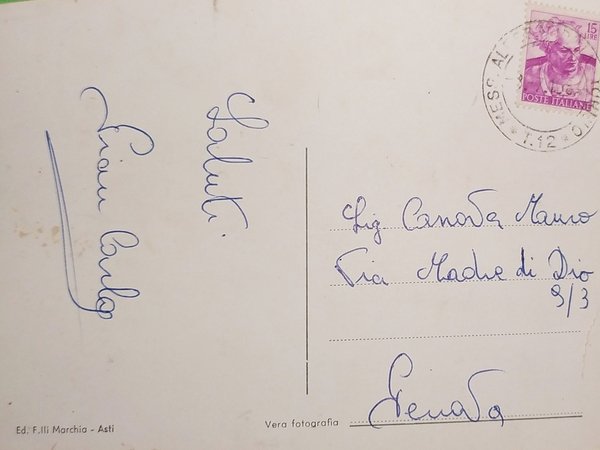 Saluti
Gian Carlo
Sig. Canova Mauro
Via Madre di Dio
9/3
Genova
15
LIRE
POSTE ITALIANE
MESS. AL
TORINO
T.12
Vera fotografia
Ed. F.lli Marchia - Asti